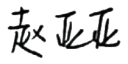 赵亚亚